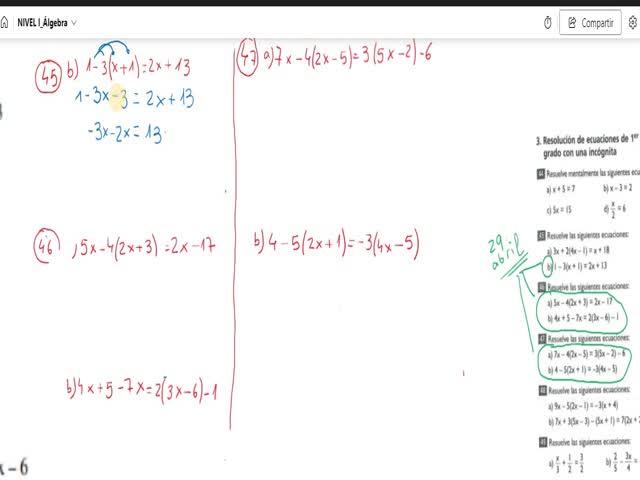 NIVEL I_Álgebra
Compartir
45 b) 1-3(x+1)=2x+13
1-3x-3=2x+13
-3x-2x=13
46 ,5x-4(2x+3)=2x-17
b) 4x+5-7x=2(3x-6)-1
47 a) 7x-4(2x-5)=3(5x-2)-6
b) 4-5(2x+1)=-3(4x-5)
x-6
29 abril
3. Resolución de ecuaciones de 1er
grado con una incógnita
44 Resuelve mentalmente las siguientes ecua
a) x + 5 = 7 b) x - 3 = 2
c) 5x = 15 d) x/2 = 6
45 Resuelve las siguientes ecuaciones:
a) 3x + 2(4x - 1) = x + 18
b) 1 - 3(x + 1) = 2x + 13
46 Resuelve las siguientes ecuaciones:
a) 5x - 4(2x + 3) = 2x - 17
b) 4x + 5 - 7x = 2(3x - 6) - 1
47 Resuelve las siguientes ecuaciones:
a) 7x - 4(2x - 5) = 3(5x - 2) - 6
b) 4 - 5(2x + 1) = -3(4x - 5)
48 Resuelve las siguientes ecuaciones:
a) 9x - 5(2x - 1) = -3(x + 4)
b) 7x + 3(5x - 3) - (5x + 1) = 7(2x +
49 Resuelve las siguientes ecuaciones:
a) x/3 + 1/2 = 3/2 b) 2/5 - 3x/4 =